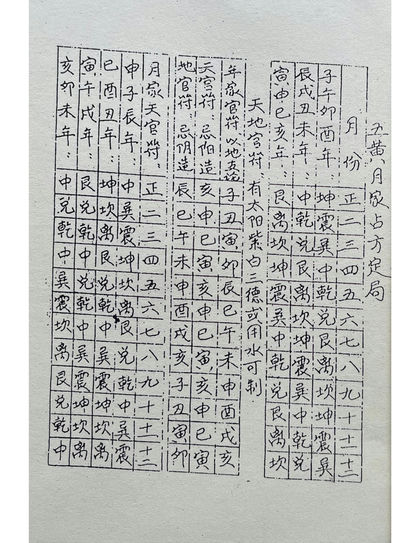 五黄月家占方定局
月份 正 二 三 四 五 六 七 八 九 十 十一 十二
子午卯酉年： 坤 震 巽 中 乾 兑 艮 离 坎 坤 震 巽
辰戌丑未年： 中 乾 兑 艮 离 坎 坤 震 巽 中 乾 兑
寅申巳亥年： 艮 离 坎 坤 震 巽 中 乾 兑 艮 离 坎
天地官符 有太阳紫白三德或用水可制
年家官符 以地支论 子 丑 寅 卯 辰 巳 午 未 申 酉 戌 亥
天官符： 忌阳造 亥 申 巳 寅 亥 申 巳 寅 亥 申 巳 寅
地官符： 忌阴造 辰 巳 午 未 申 酉 戌 亥 子 丑 寅 卯
月家天官符： 正 二 三 四 五 六 七 八 九 十 十一 十二
申子辰年： 中 巽 震 坤 坎 离 艮 兑 乾 中 巽 震
巳酉丑年： 坤 坎 离 艮 兑 乾 中 巽 震 坤 坎 离
寅午戌年： 艮 兑 乾 中 兑 乾 中 巽 震 坤 坎 离
亥卯未年： 中 兑 乾 中 巽 震 坎 离 艮 兑 乾 中